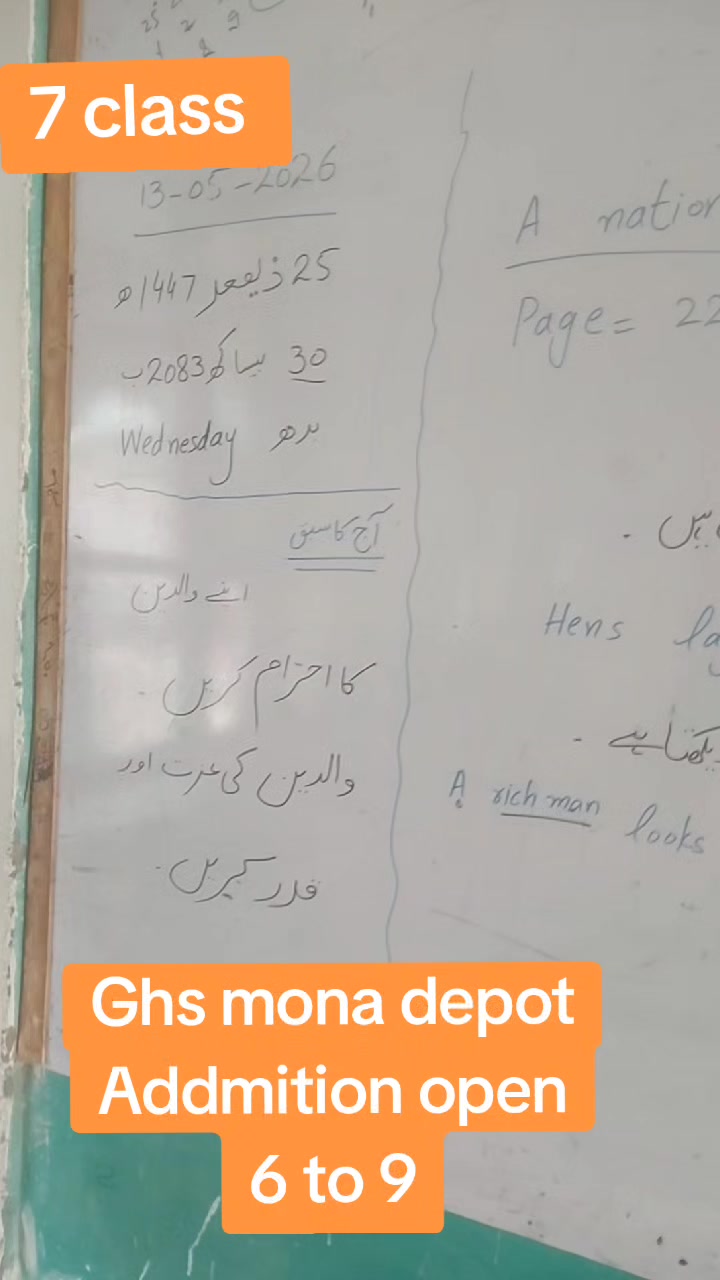 7 class
13-05-2026
25 ذیقعد 1447ھ
30 بیساکھ 2083ب
Wednesday بدھ
آج کا سبق
اپنے والدین
کا احترام کریں۔
والدین کی عزت اور
قدر کریں۔
A nation
Page= 22
ہیں۔
Hens la
دیکھتا ہے۔
A rich man looks
Ghs mona depot
Addmition open
6 to 9